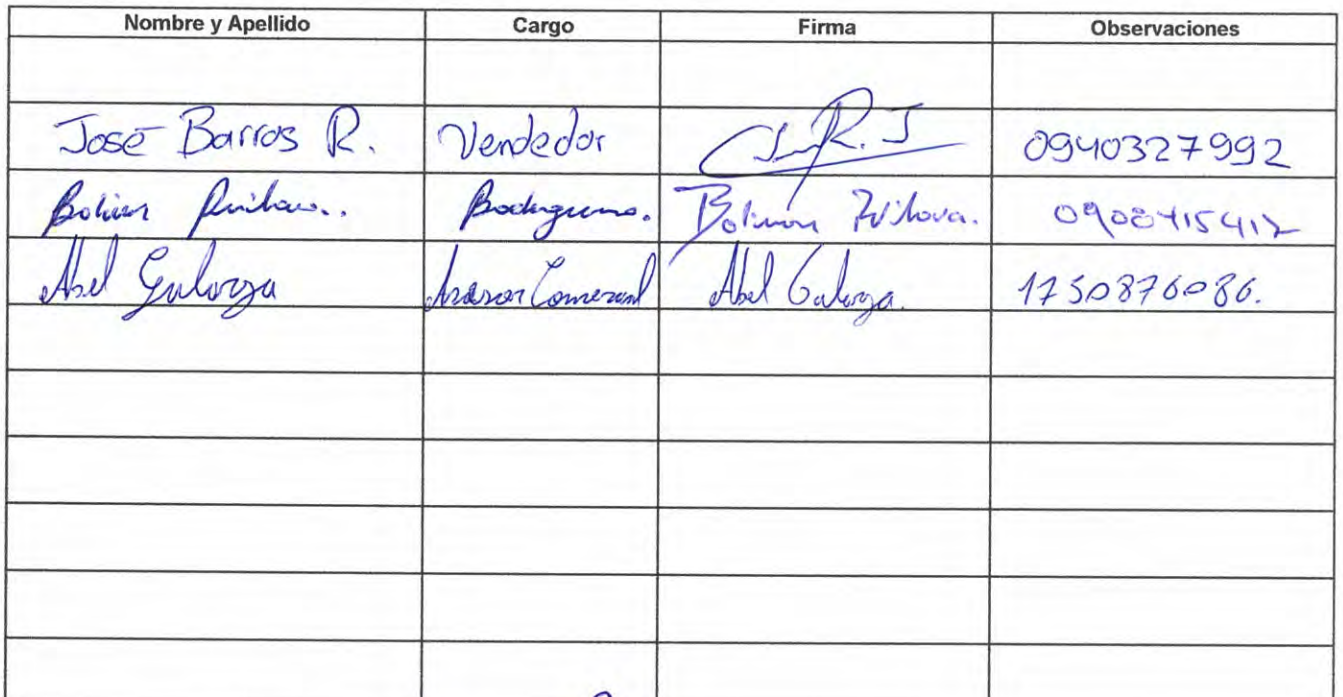 Nombre y Apellido Cargo Firma Observaciones
José Barros R. Vendedor R. J 0940327992
Bolivar Bodeguero. Bolivar
Abel Galarza Asesor Comercial Abel Galarza. 1750876086.